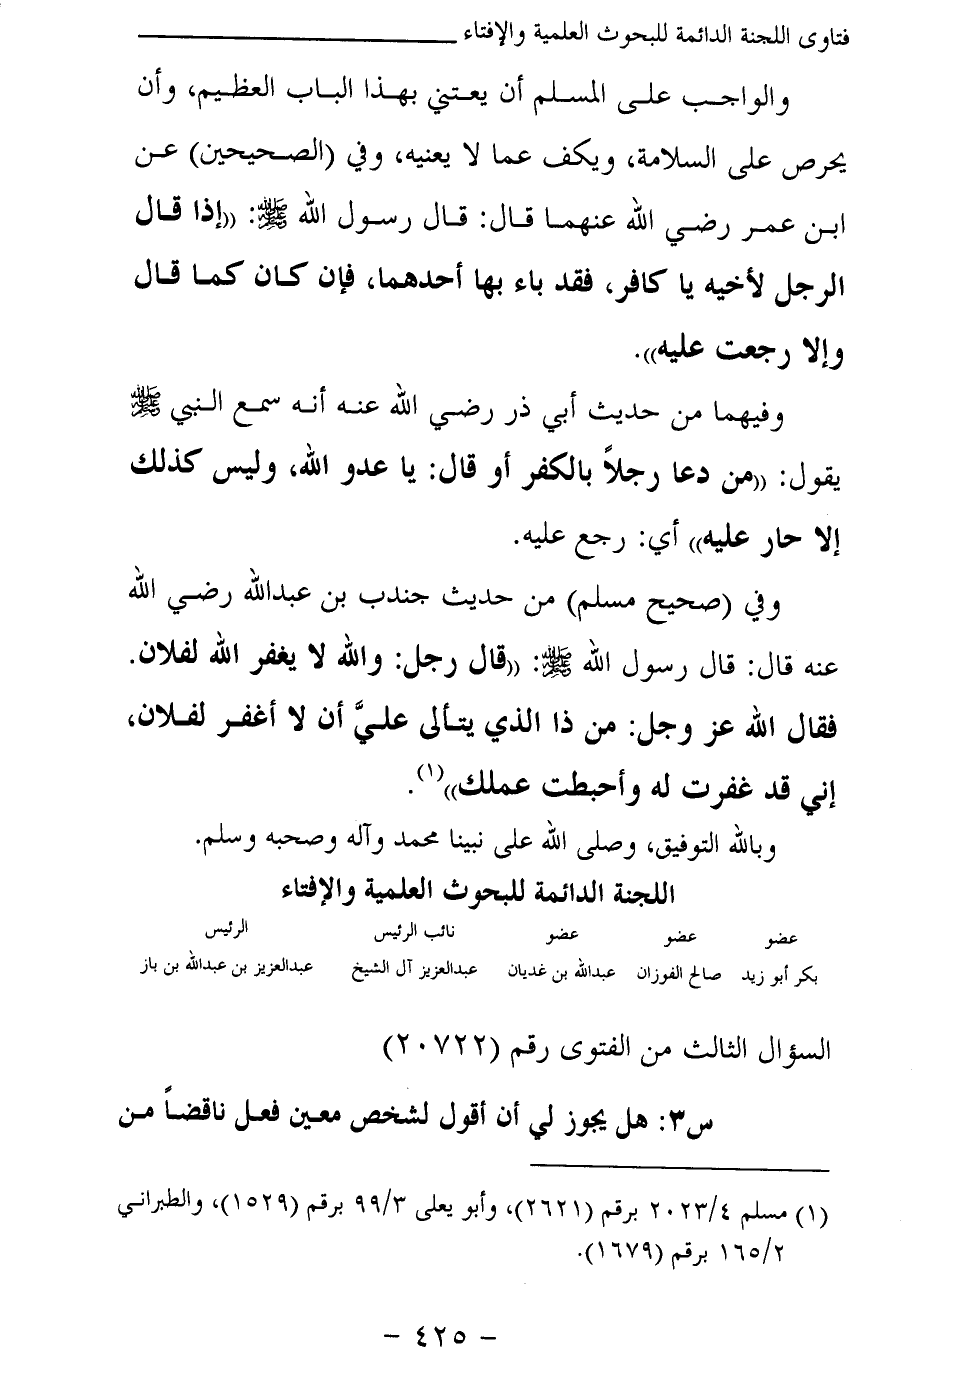 فتاوى اللجنة الدائمة للبحوث العلمية والإفتاء
والواجب على المسلم أن يعتني بهذا الباب العظيم، وأن
يحرص على السلامة، ويكف عما لا يعنيه، وفي (الصحيحين) عن
ابن عمر رضي الله عنهما قال: قال رسول الله ﷺ: ((إذا قال
الرجل لأخيه يا كافر، فقد باء بها أحدهما، فإن كان كما قال
وإلا رجعت عليه)).
وفيهما من حديث أبي ذر رضي الله عنه أنه سمع النبي ﷺ
يقول: ((من دعا رجلاً بالكفر أو قال: يا عدو الله، وليس كذلك
إلا حار عليه)) أي: رجع عليه.
وفي (صحيح مسلم) من حديث جندب بن عبدالله رضي الله
عنه قال: قال رسول الله ﷺ: ((قال رجل: والله لا يغفر الله لفلان.
فقال الله عز وجل: من ذا الذي يتألى عليَّ أن لا أغفر لفلان،
إني قد غفرت له وأحبطت عملك))(١).
وبالله التوفيق، وصلى الله على نبينا محمد وآله وصحبه وسلم.
اللجنة الدائمة للبحوث العلمية والإفتاء
عضو عضو عضو نائب الرئيس الرئيس
بكر أبو زيد صالح الفوزان عبدالله بن غديان عبدالعزيز آل الشيخ عبدالعزيز بن عبدالله بن باز
السؤال الثالث من الفتوى رقم (٢٠٧٢٢)
س٣: هل يجوز لي أن أقول لشخص معين فعل ناقضاً من
(١) مسلم ٢٠٢٣/٤ برقم (٢٦٢١)، وأبو يعلى ٩٩/٣ برقم (١٥٢٩)، والطبراني
١٦٥/٢ برقم (١٦٧٩).
- ٤٢٥ -